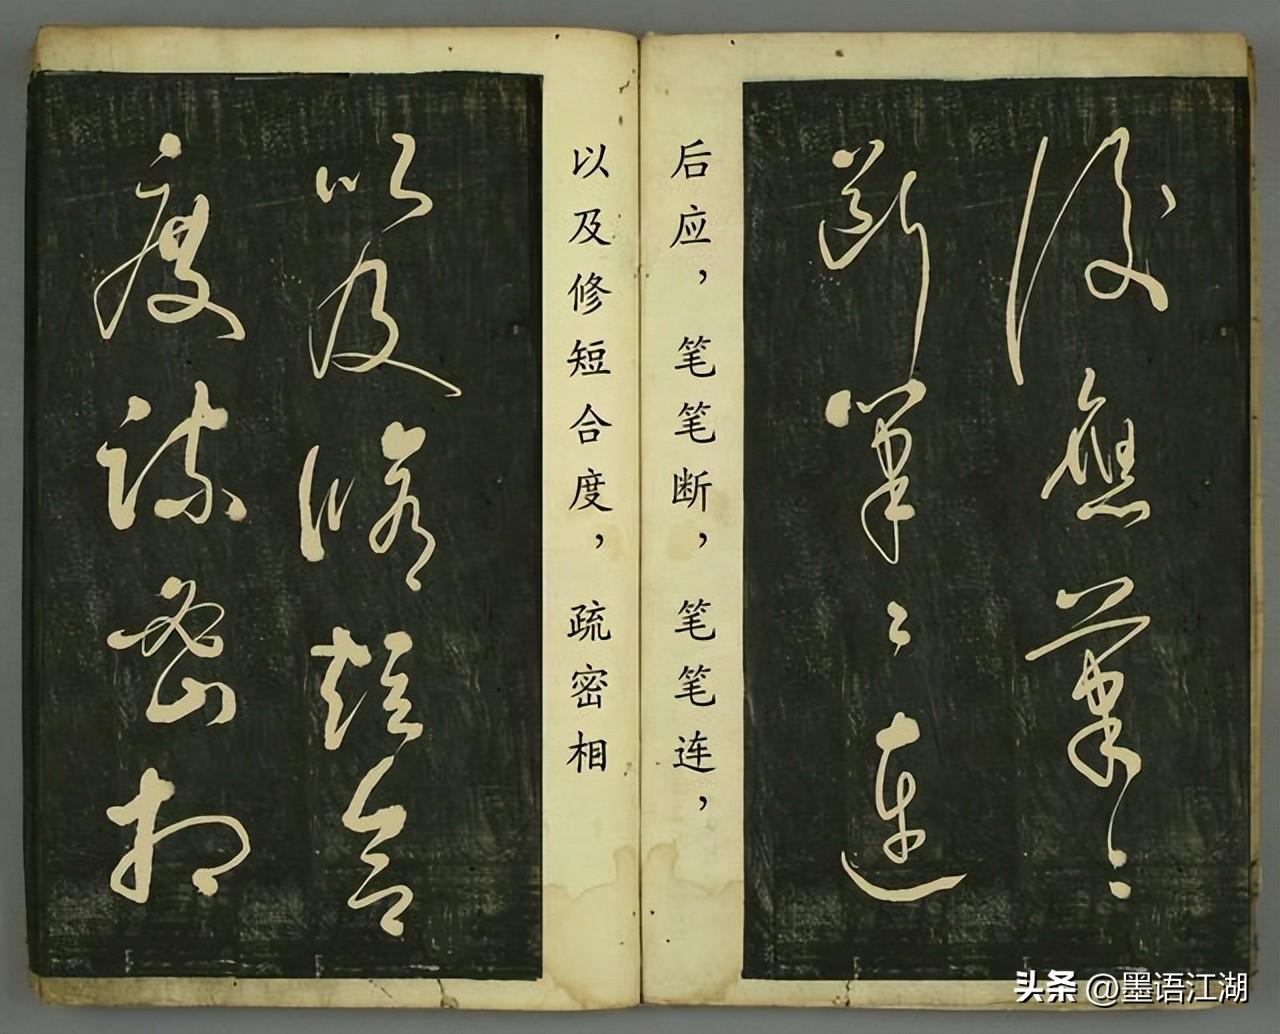 後應筆〻
斷筆〻連
后应，笔笔断，笔笔连，
以及修短合度，疏密相
以及脩短合
度疏密相
头条 @墨语江湖